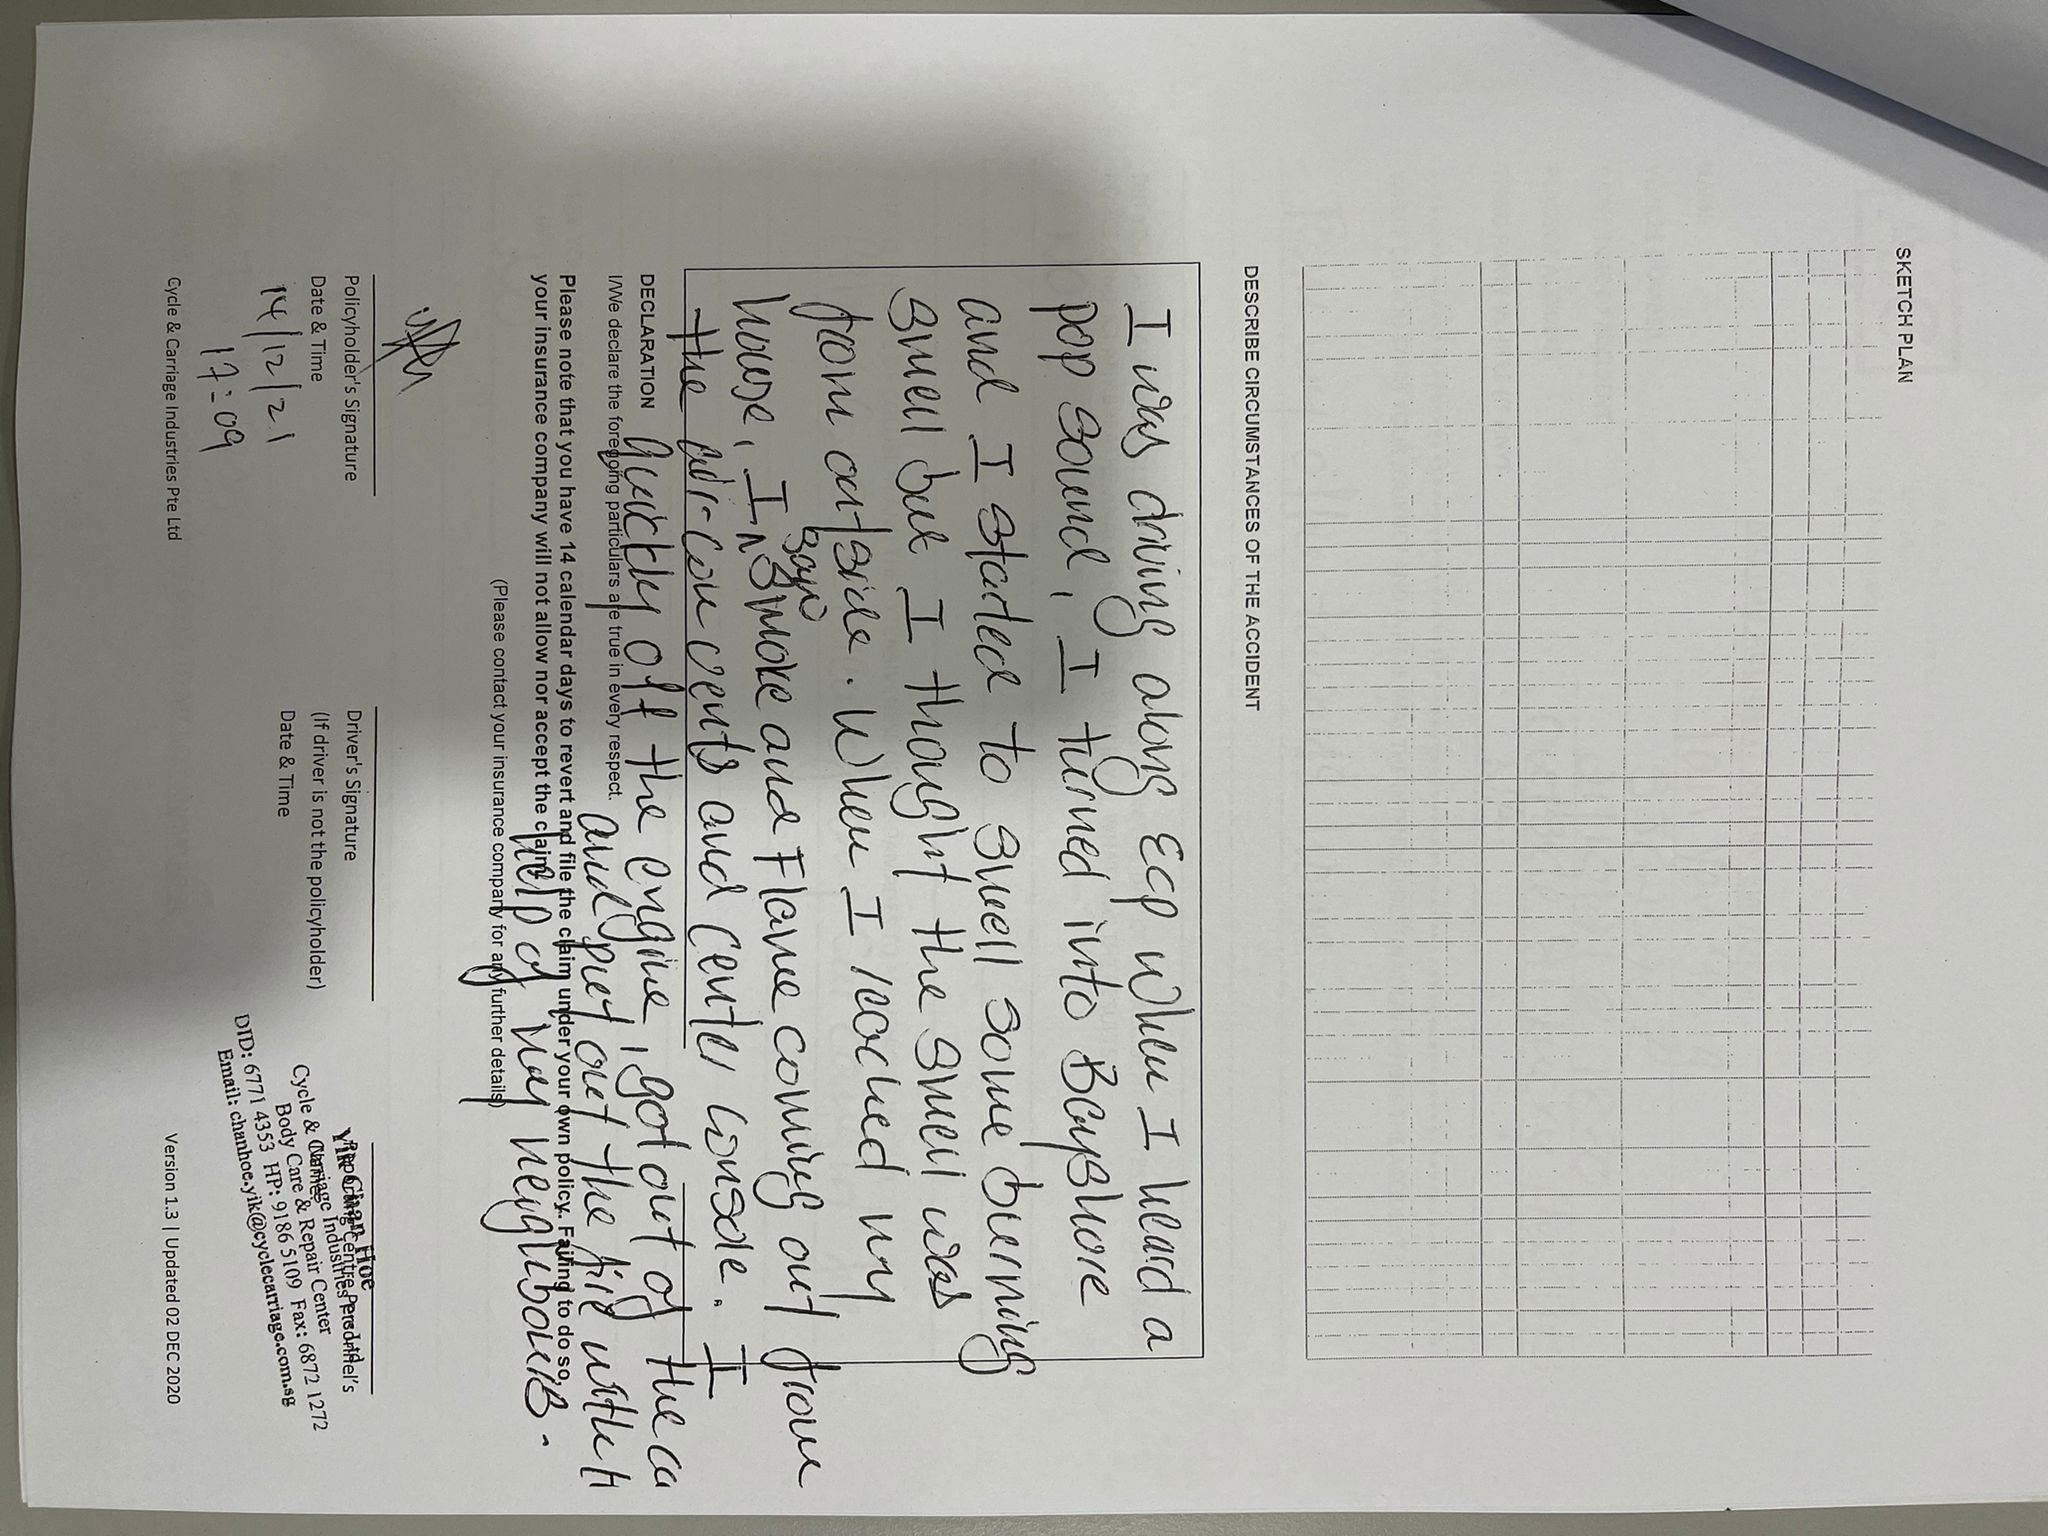 SKETCH PLAN
DESCRIBE CIRCUMSTANCES OF THE ACCIDENT
I was driving along Ecp when I heard a
pop sound, I turned into Bayshore
and I started to smell some burning
smell but I thought the smell was
from outside. When I reached my
house, I saw smoke and Flame coming out from
the air-con vents and center console. I
quickly off the engine, got out of the car
and put out the fire with
help of my neighbours.
DECLARATION
I/We declare the foregoing particulars are true in every respect.
Please note that you have 14 calendar days to revert and file the claim under your own policy. Failing to do so,
your insurance company will not allow nor accept the claim.
(Please contact your insurance company for any further details)
Policyholder's Signature
Date & Time
14/12/21
17:09
Driver's Signature
(If driver is not the policyholder)
Date & Time
Reporting Centre Personnel's
Yik Chan Hoe
Cycle & Carriage Industries Pte Ltd
Body Care & Repair Center
DID: 6771 4353 HP: 9186 5109 Fax: 6872 1272
Email: chanhoe.yik@cyclecarriage.com.sg
Cycle & Carriage Industries Pte Ltd
Version 1.3 | Updated 02 DEC 2020